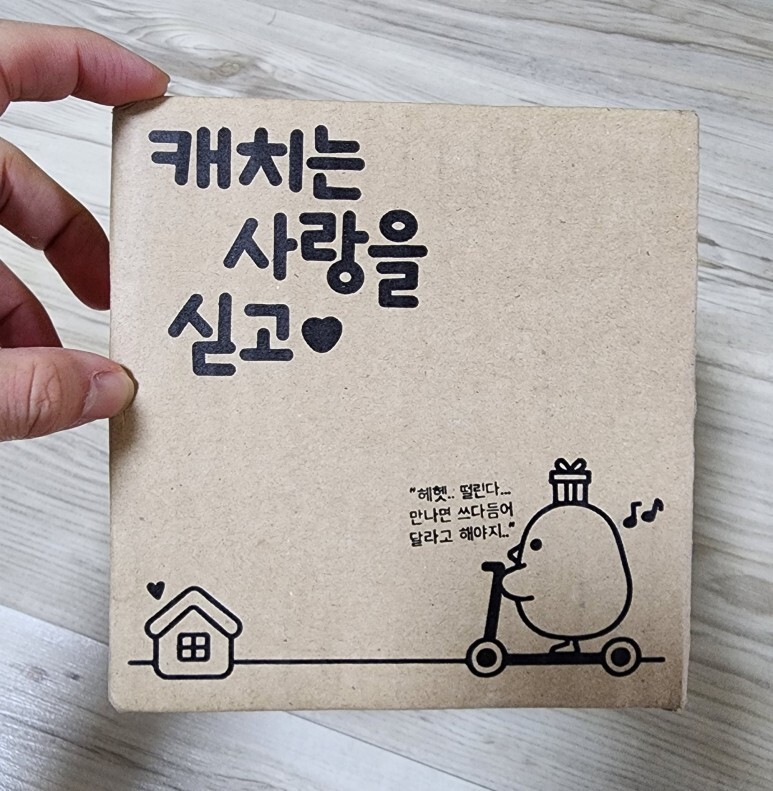 캐치는
사랑을
싣고♥
"헤헷.. 떨린다...
만나면 쓰다듬어
달라고 해야지.."